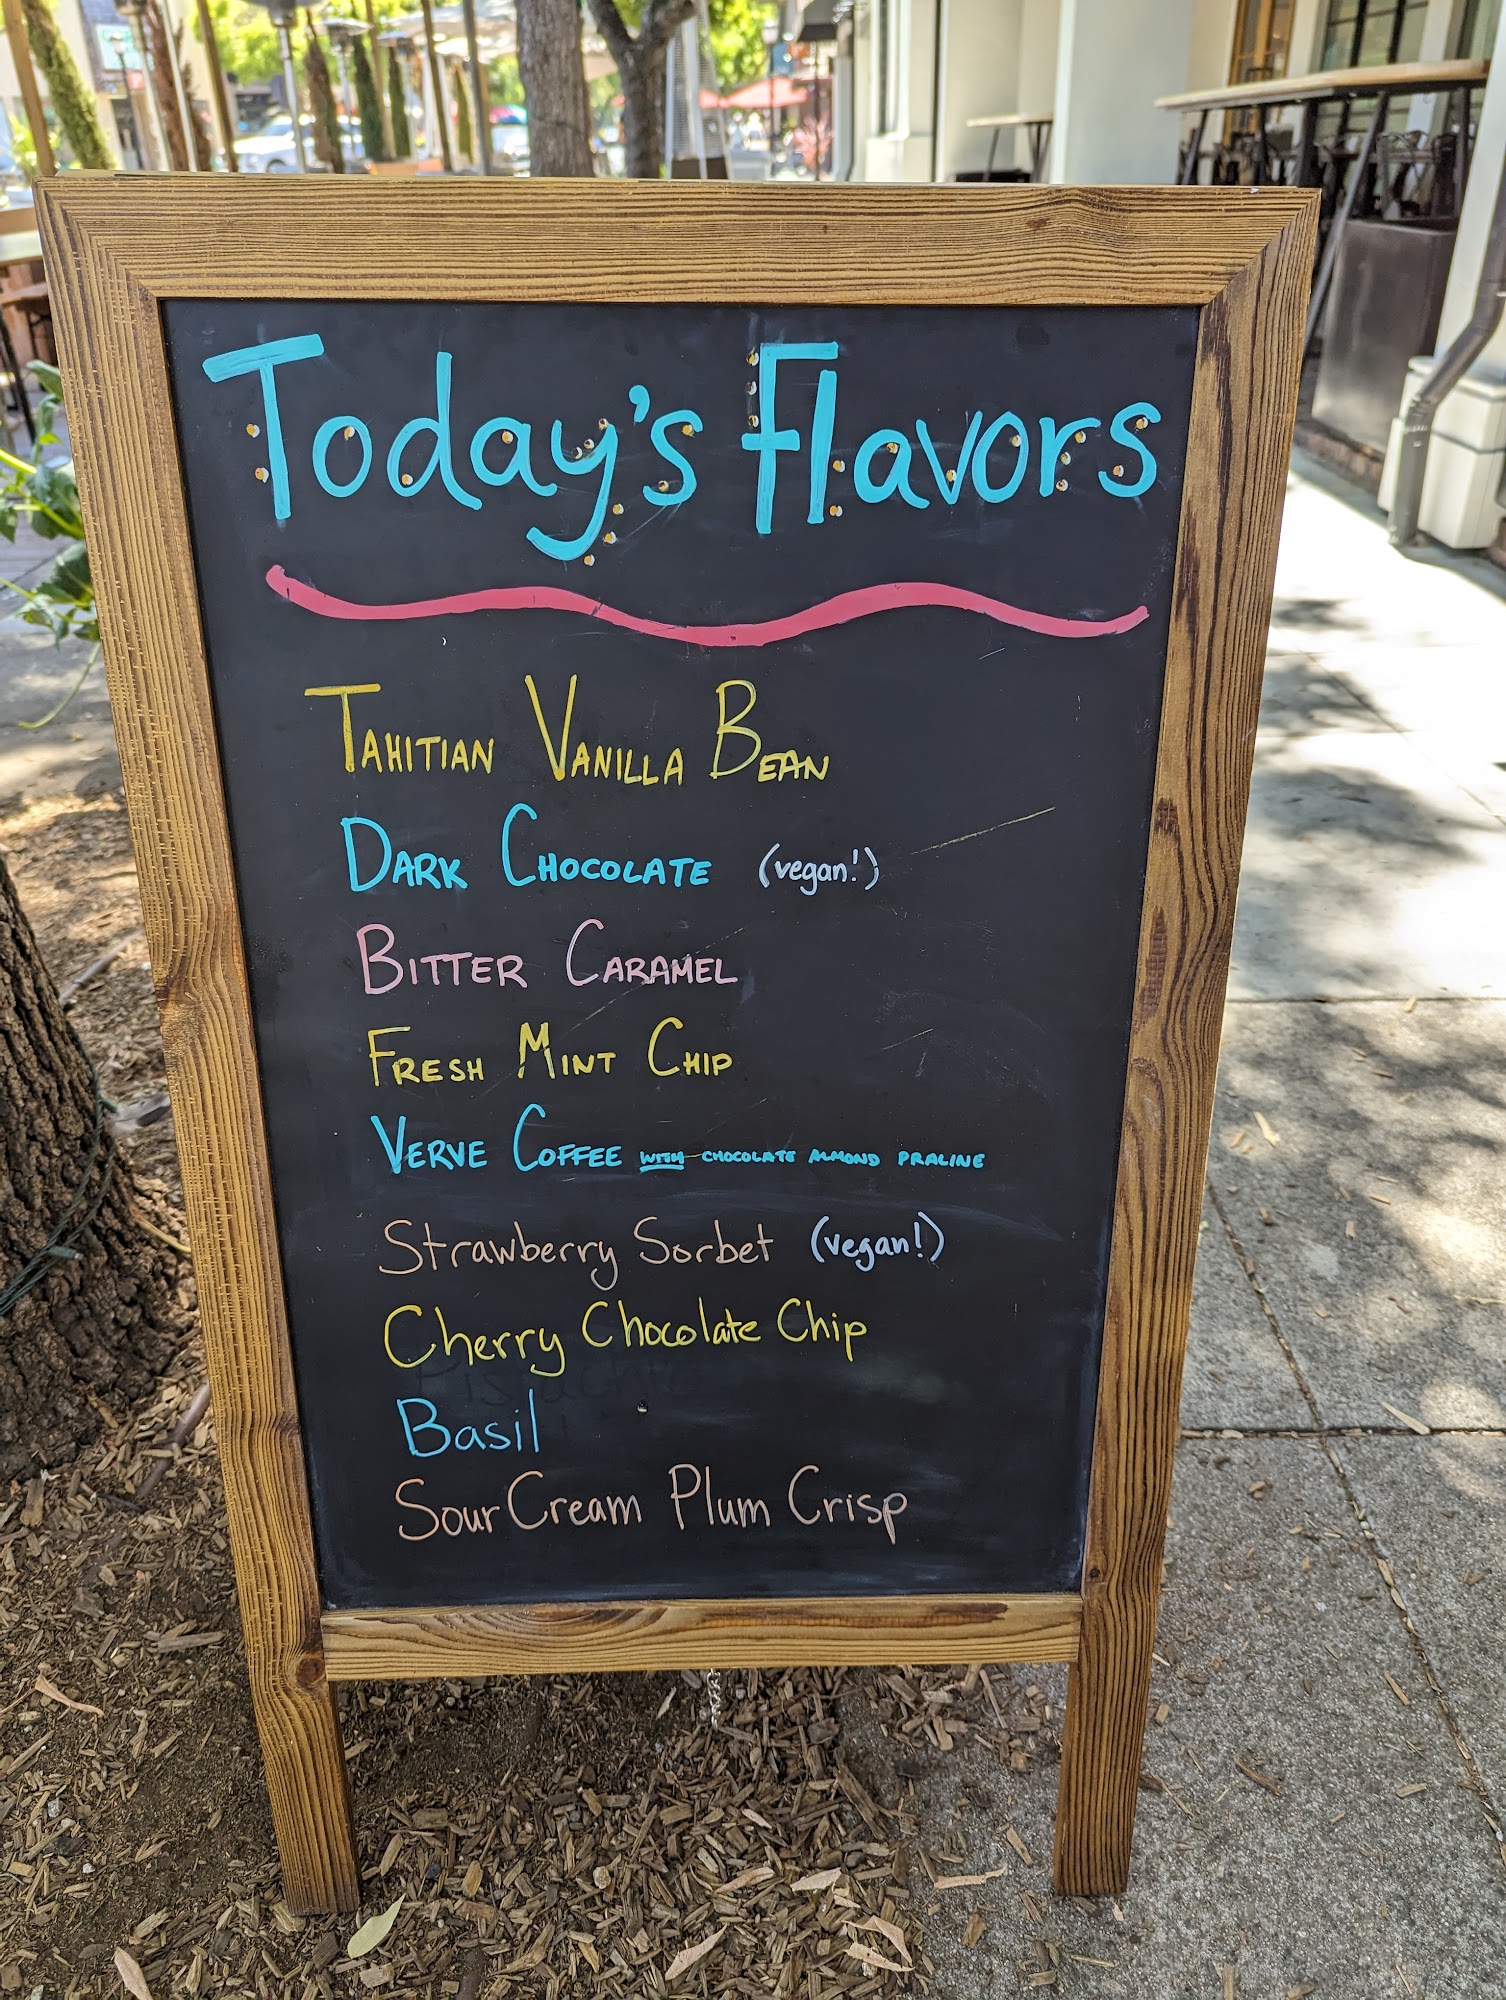 Today's Flavors
TAHITIAN VANILLA BEAN
DARK CHOCOLATE (vegan!)
BITTER CARAMEL
FRESH MINT CHIP
VERVE COFFEE WITH CHOCOLATE ALMOND PRALINE
Strawberry Sorbet (vegan!)
Cherry Chocolate Chip
Basil
Sour Cream Plum Crisp